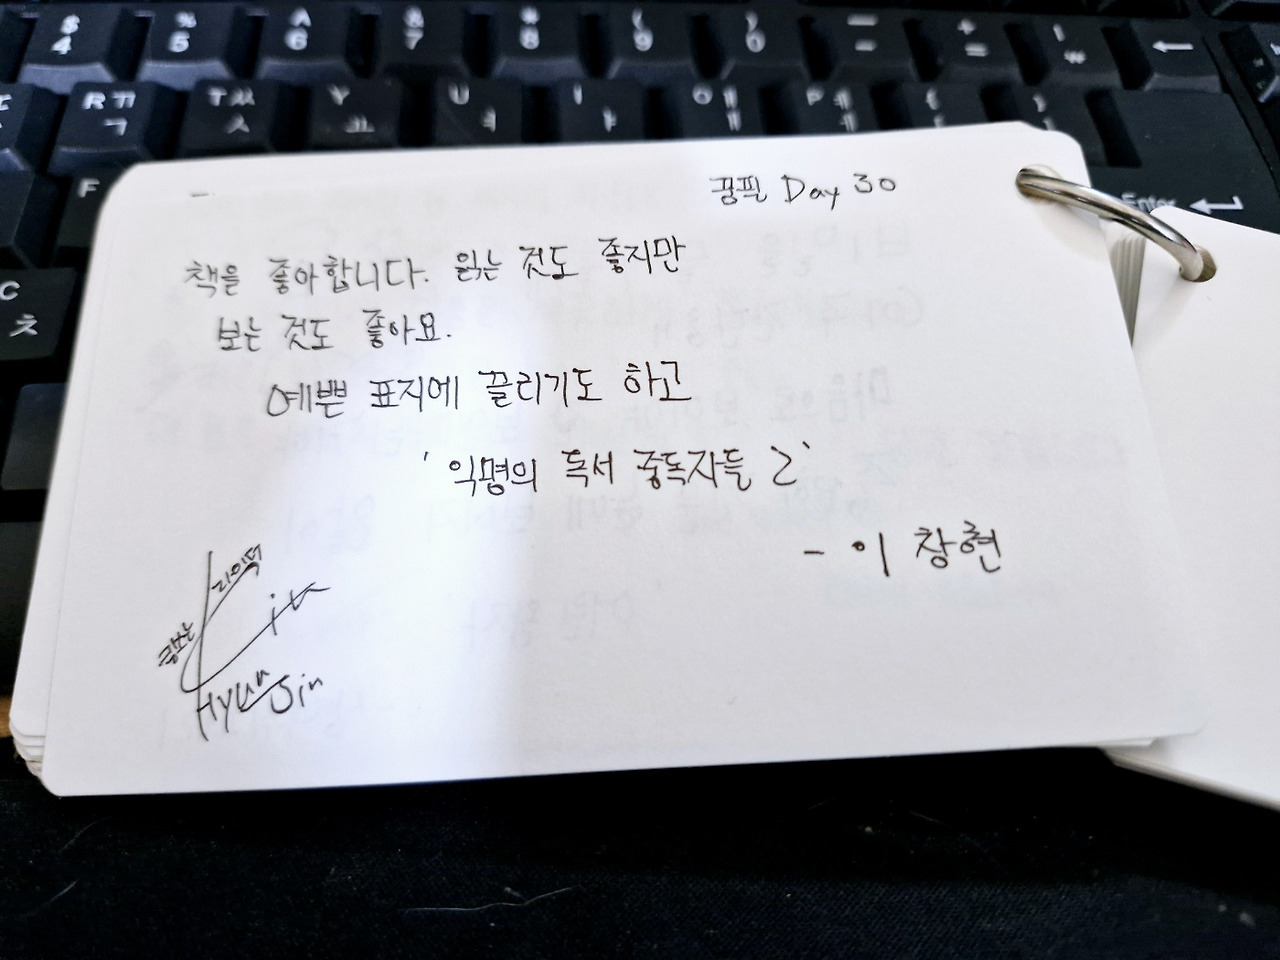 $ 4
% 5
^ 6
& 7
* 8
( 9
) 0
- -
+ =
| ₩
←
R ㄲ ㄱ
T ㅆ ㅅ
Y ㅛ
U ㅕ
I ㅑ
O ㅒ ㅐ
P ㅖ ㅔ
{ [
} ]
F
Enter
C ㅊ
꿍필 Day 30
책을 좋아합니다. 읽는 것도 좋지만
보는 것도 좋아요.
예쁜 표지에 끌리기도 하고
'익명의 독서 중독자들 2'
- 이 창현
Hyun Jin